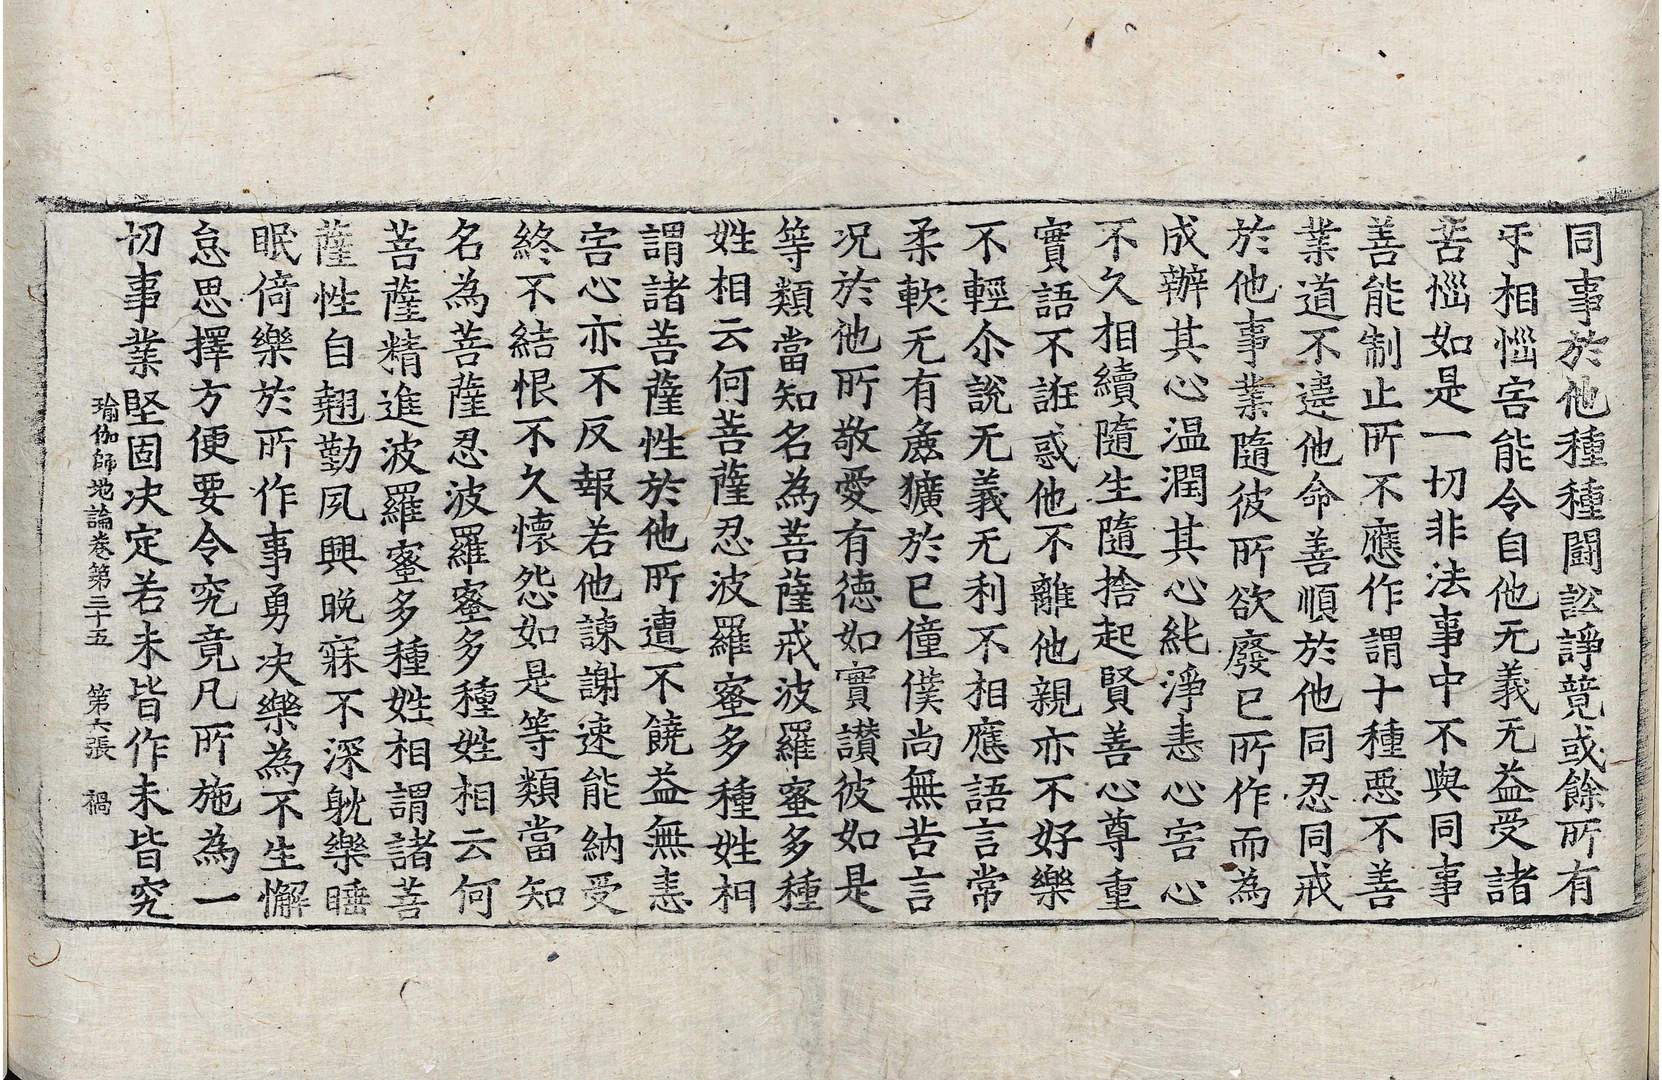 同事於他種種鬪訟諍競或餘所有
㸦相惱害能令自他无義无益受諸
苦惱如是一切非法事中不與同事
善能制止所不應作謂十種惡不善
業道不違他命善順於他同忍同戒
於他事業隨彼所欲廢已所作而為
成辦其心温潤其心純淨恚心害心
不久相續隨生隨捨起賢善心尊重
實語不誑惑他不離他親亦不好樂
不輕尒說无義无利不相應語言常
柔軟无有麁獷於已僮僕尚無苦言
況於他所敬愛有德如實讃彼如是
等類當知名為菩薩戒波羅蜜多種
姓相云何菩薩忍波羅蜜多種姓相
謂諸菩薩性於他所遭不饒益無恚
害心亦不反報若他諫謝速能納受
終不結恨不久懷怨如是等類當知
名為菩薩忍波羅蜜多種姓相云何
菩薩精進波羅蜜多種姓相謂諸菩
薩性自翹勤夙興晚寐不深躭樂睡
眠倚樂於所作事勇决樂為不生懈
怠思擇方便要令究竟凡所施為一
切事業堅固决定若未皆作未皆究
瑜伽師地論卷第三十五　第六張　禍